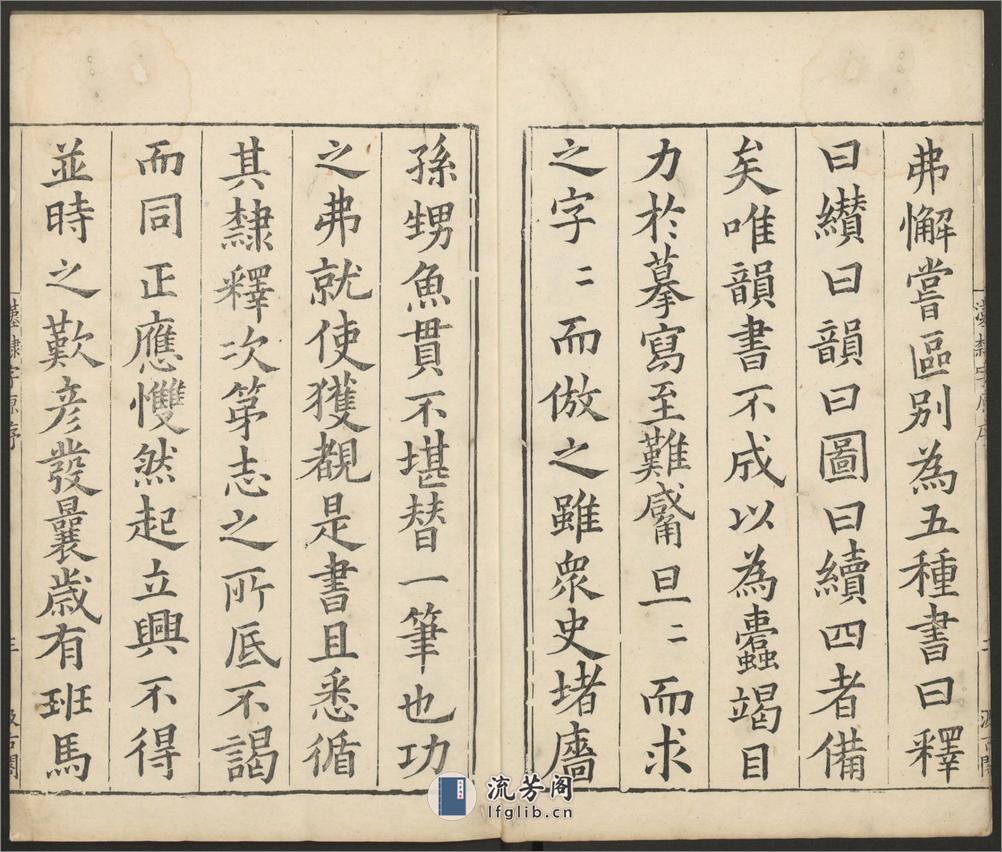 弗懈嘗區別為五種書曰釋
曰纘曰韻曰圖曰續四者備
矣唯韻書不成以為蠹竭目
力於摹寫至難旦二而求
之字二而倣之雖眾史堵廧
孫甥魚貫不堪替一筆也功
之弗就使獲觀是書且悉循
其隸釋次第志之所底不謁
而同正應戄然起立興不得
並時之歎彥發曩歲有班馬
漢隸字原序
三
汲古閣
流芳阁
lfglib.cn